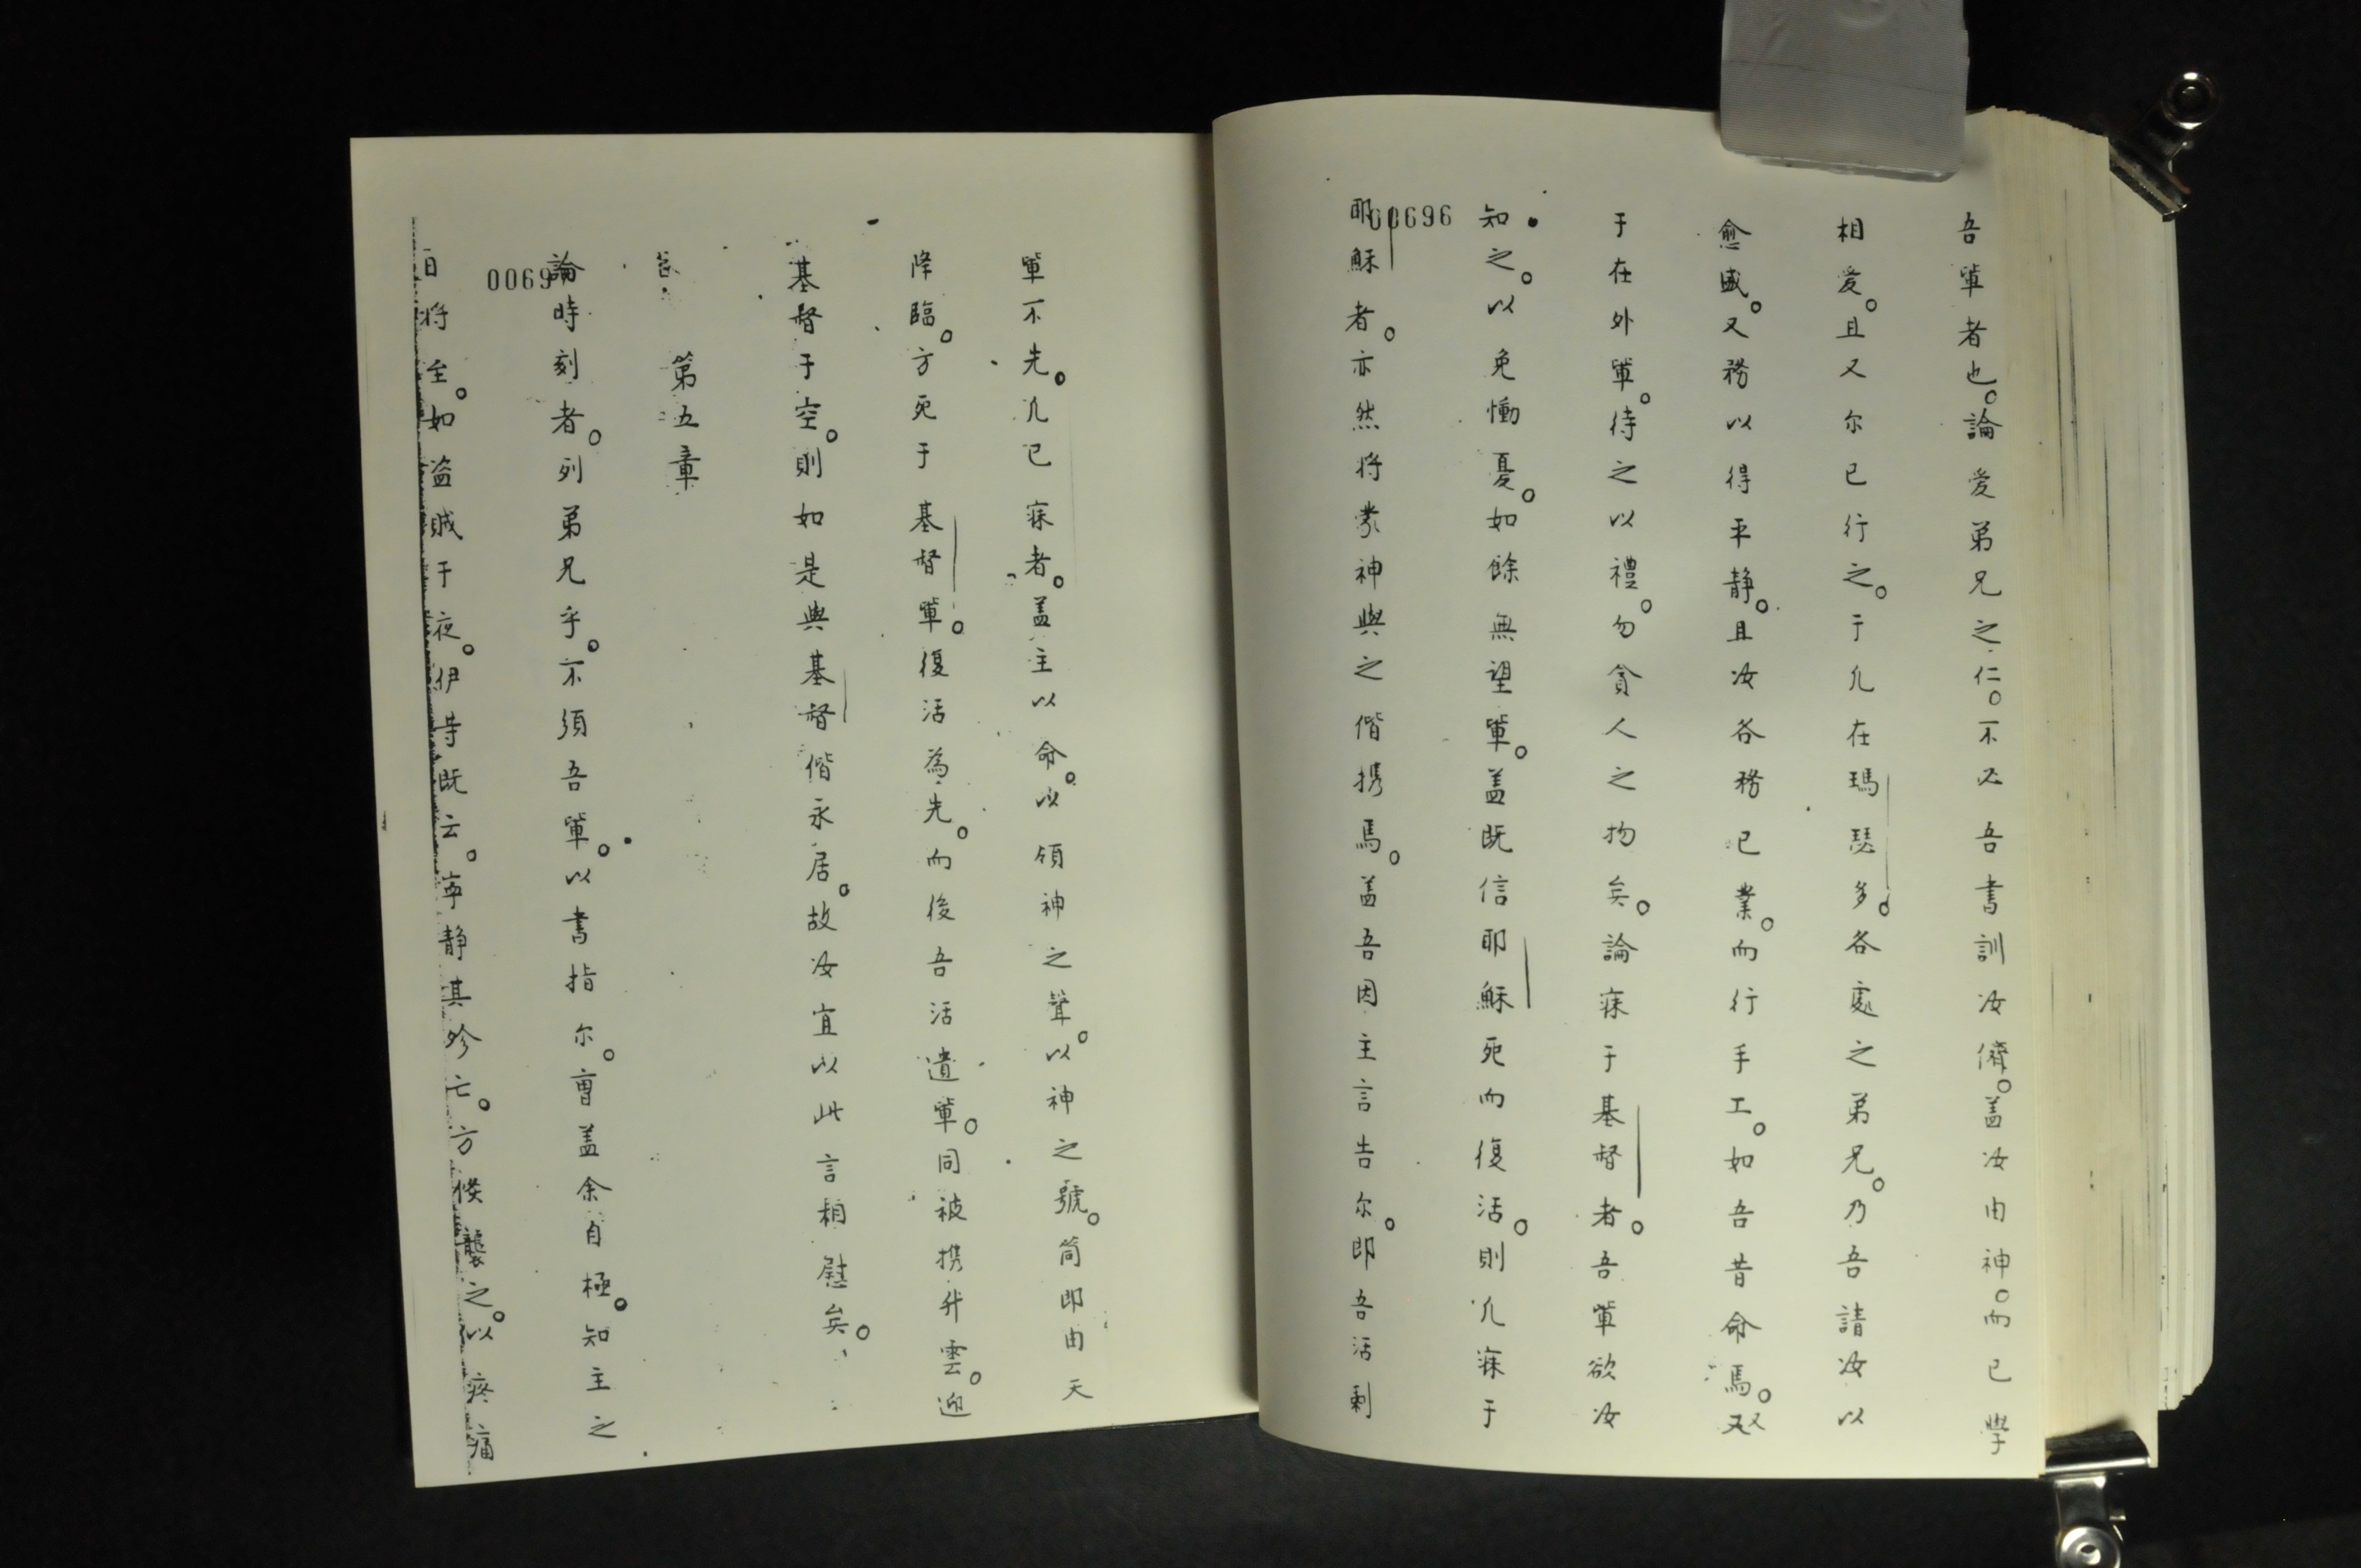 吾軰者也。論愛弟兄之仁。不必吾書訓汝儕。盖汝由神。而已學
相愛。且又尔已行之。于凢在瑪瑟多。各處之弟兄。乃吾請汝以
愈盛。又務以得平静。且汝各務已業。而行手工。如吾昔命焉。又以
于在外軰。待之以禮。勿貪人之物矣。論寐于基督者。吾軰欲汝
知之。以免慟憂。如餘無望軰。盖既信耶穌死而復活。則凢寐于
耶穌者。亦然将蒙神與之偕携焉。盖吾因主言告尔。即吾活剩
00696
軰不先。凢已寐者。盖主以命。以領神之聲。以神之號。筒即由天
降臨。方死于基督軰。復活為先。而後吾活遺軰。同被携升雲。迎
基督于空。則如是與基督偕永居。故汝宜以此言相慰矣。
第五章
論時刻者。列弟兄乎。不須吾軰。以書指尔。曺盖余自極。知主之
0069
日将至。如盗賊于夜。伊等既云。寧静其殄亡。方倏襲之。以疼痛